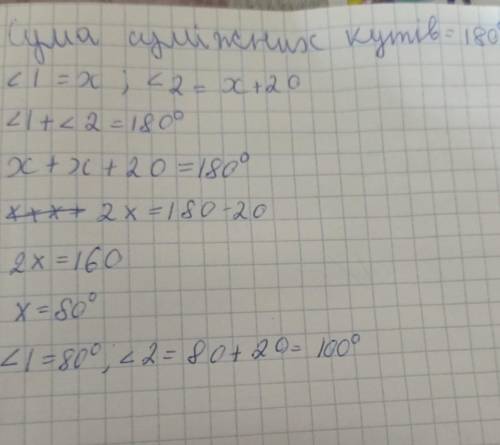 Сума суміжних кутів = 180°
∠1 = x ; ∠2 = x+20
∠1 + ∠2 = 180°
x + x + 20 = 180°
x+x+ 2x = 180 - 20
2x = 160
x = 80°
∠1 = 80°; ∠2 = 80 + 20 = 100°